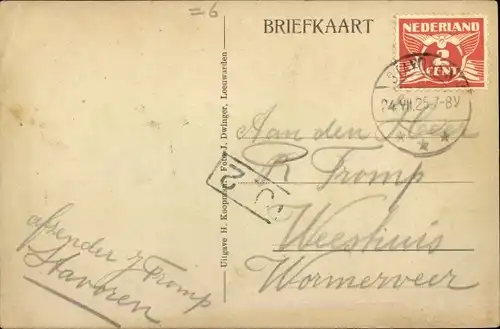 =6
BRIEFKAART
NEDERLAND
2
CENT
24.VII.25 7-8V
Aan den Heer
R Tromp
Weeshuis
Wormerveer
afzender J Tromp
Stavoren
Uitgave H. Koopmans, Foto J. Dwinger, Leeuwarden